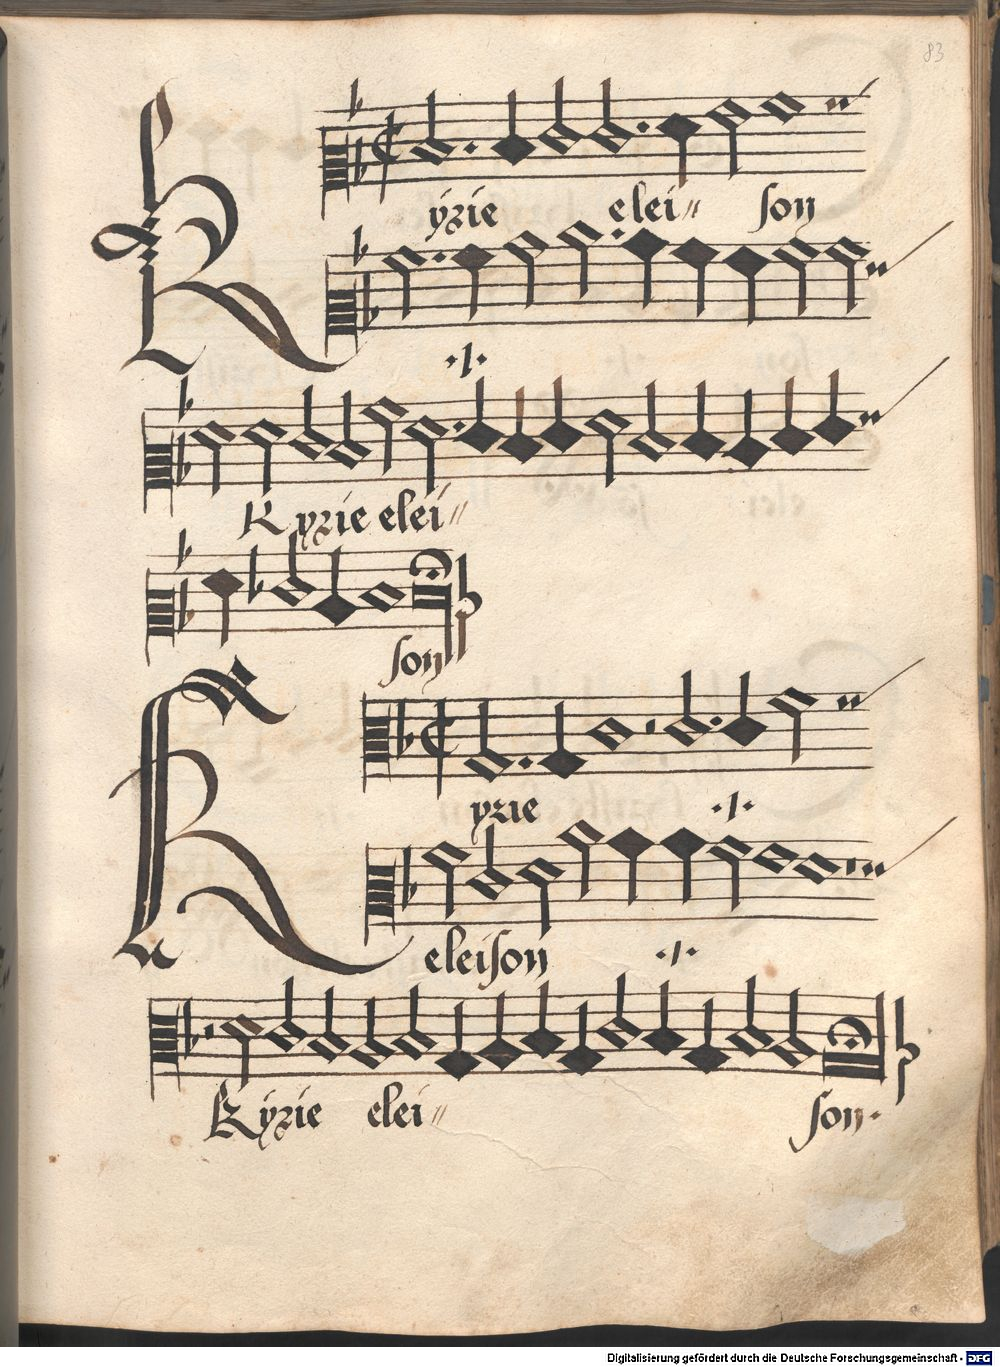 83
Kÿrie elei〃 son
·/·
Kyrie elei〃
son
Kyrie ·/·
eleison ·/·
Kÿrie elei〃 son·
Digitalisierung gefördert durch die Deutsche Forschungsgemeinschaft - DFG